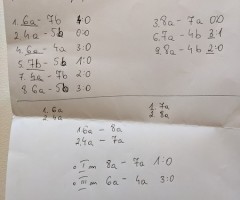 1. 6a - 7b 4:0
2. 4a - 5b 0:0
4. 6a - 4a 3:0
5. 7b - 5b 1:0
7. 4a - 7b 2:0
8. 6a - 5b 3:0
3. 8a - 7a 0:0
6. 7a - 4b 3:1
9. 8a - 4b 2:0
1. 6a
2. 4a
1. 7a
2. 8a
1. 6a - 8a
2. 4a - 7a
I m 8a - 7a 1:0
III m 6a - 4a 3:0